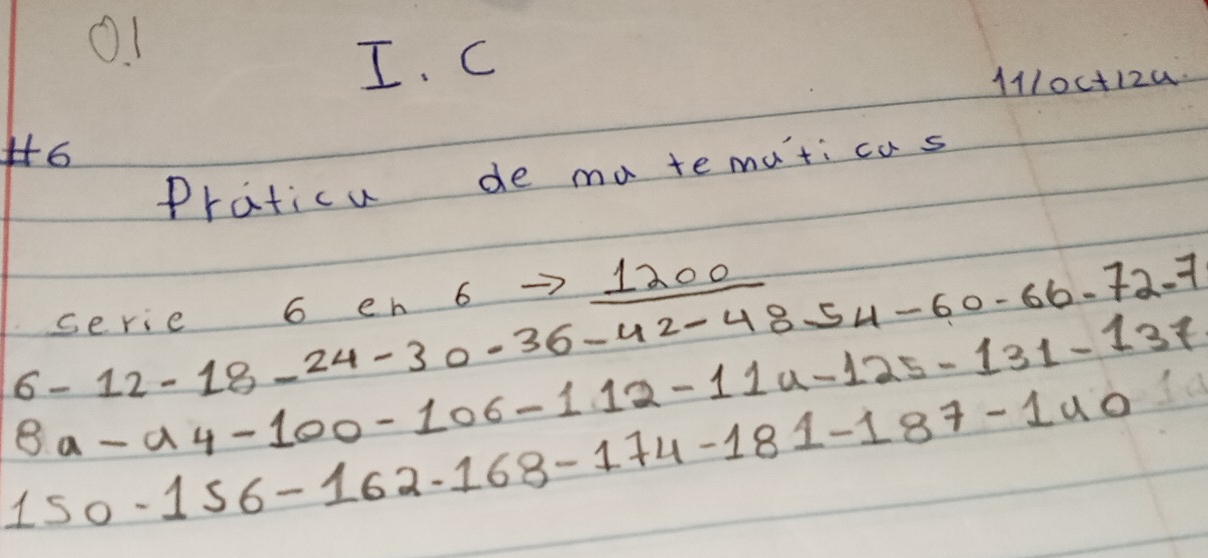 0.1
I. C
11/oct/24.
#6
Prática de matemáticas
serie 6 en 6 → 1200
6-12-18-24-30-36-42-48-54-60-66-72-7
89-94-100-106-112-119-125-131-137
150-156-162-168-174-181-187-190